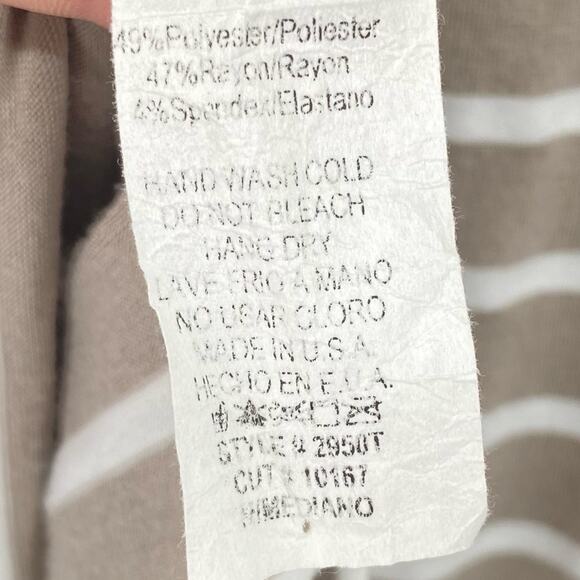 49%Polyester/Poliester
47%Rayon/Rayon
4%Spendex/Elastano
HAND WASH COLD
DO NOT BLEACH
HANG DRY
LAVE FRIO A MANO
NO USAR CLORO
MADE IN U.S.A.
HECHO EN E.U.A.
STYLE # 2950T
CUT # 10167
M/MEDIANO